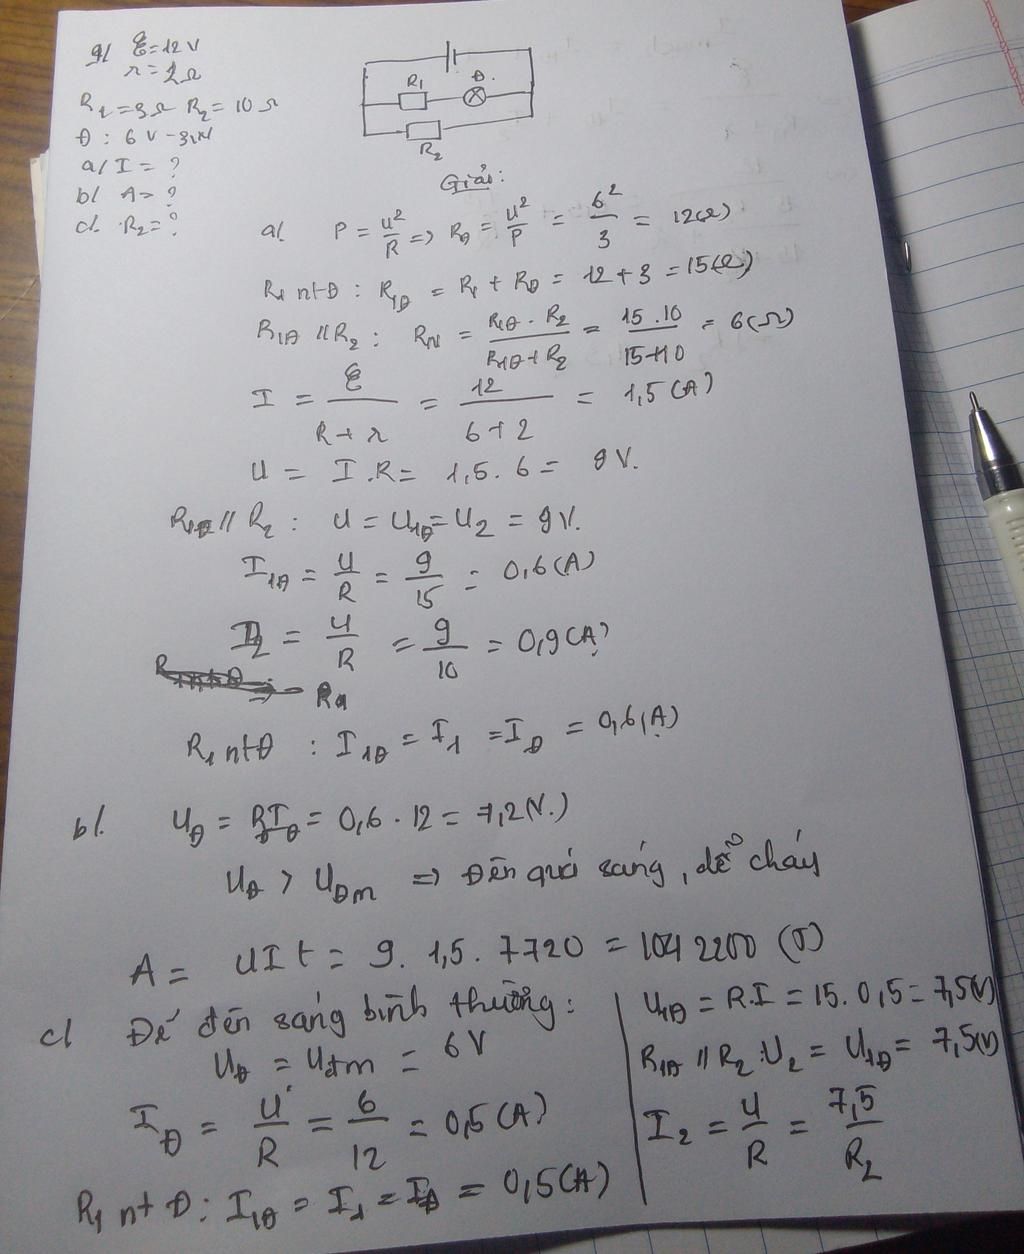 9/ ℰ=12V
r=2Ω
R1=3Ω R2=10Ω
Đ: 6V-3W
a/ I = ?
b/ A= ?
c/. R2=?
R1 Đ.
R2
Giải:
a/. P = U²/R => RĐ = U²/P = 6²/3 = 12(Ω)
R1 ntĐ : R1Đ = R1 + RĐ = 12+3 = 15(Ω)
R1Đ // R2 : RN = R1Đ . R2 / R1Đ + R2 = 15.10 / 15+10 = 6(Ω)
I = ℰ / R+r = 12 / 6+2 = 1,5 (A)
U = I.R = 1,5. 6 = 9V.
R1Đ // R2 : U = U1Đ = U2 = 9V.
I1Đ = U/R = 9/15 = 0,6(A)
I2 = U/R = 9/10 = 0,9(A)
R1 ntĐ : I1Đ = I1 = IĐ = 0,6(A)
b/. UĐ = RĐIĐ = 0,6 . 12 = 7,2(V.)
UĐ > UĐm => Đèn quá sáng, dễ cháy
A = UIt = 9. 1,5. 7720 = 1042200 (J)
c/ Để đèn sáng bình thường:
UĐ = Uđm = 6V
IĐ = U/R = 6/12 = 0,5(A)
R1 nt Đ: I1Đ = I1 = IĐ = 0,5(A)
U1Đ = R.I = 15. 0,5 = 7,5(V)
R1Đ // R2 : U2 = U1Đ = 7,5(V)
I2 = U/R = 7,5/R2